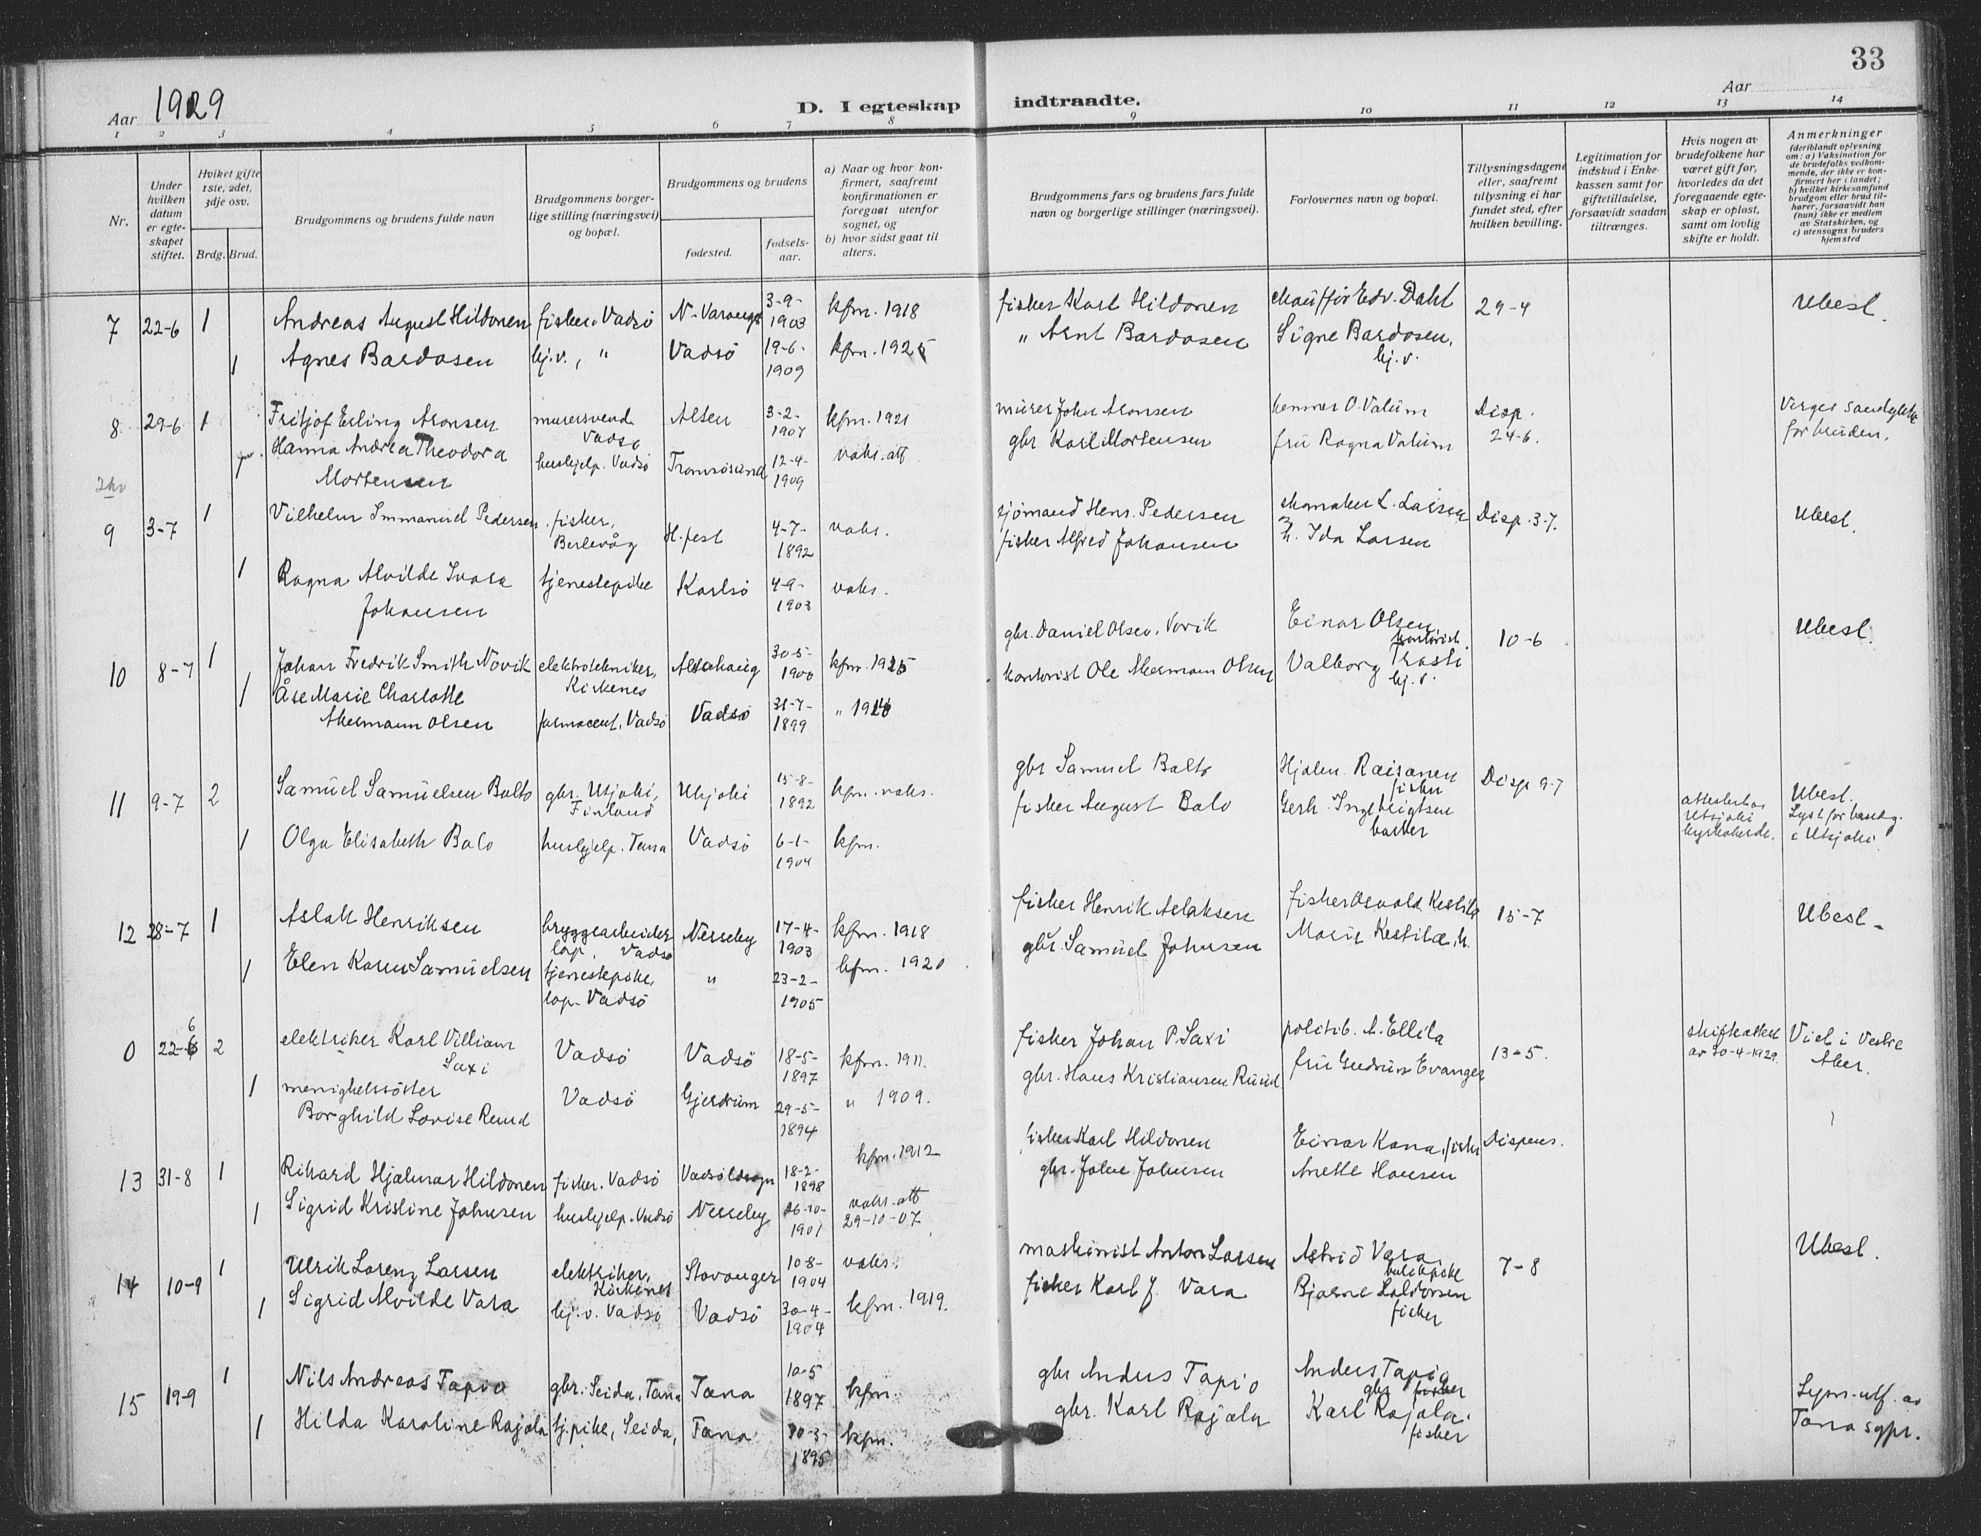 33
Aar 1929
D. I egteskap indtraadte.
Aar
1 2 3 4 5 6 7 8 9 10 11 12 13 14
Nr.
Under hvilken datum er egteskapet stiftet.
Hviket gifte 1ste, 2det, 3dje osv.
Brdg. Brud.
Brudgommens og brudens fulde navn
Brudgommens borgerlige stilling (næringsvei) og bopæl.
Brudgommens og brudens
fødested.
fødselsaar.
a) Naar og hvor konfirmert, saafremt konfirmationen er foregaat utenfor sognet, og
b) hvor sidst gaat til alters.
Brudgommens fars og brudens fars fulde navn og borgerlige stillinger (næringsvei).
Forlovernes navn og bopæl.
Tillysningsdagene eller, saafremt tillysning ei har fundet sted, efter hvilken bevilling.
Legitimation for indskud i Enkekassen samt for giftetilladelse, forsaavidt saadan tiltrænges.
Hvis nogen av brudefolkene har været gift før, hvorledes da det foregaaende egteskap er opløst, samt om lovlig skifte er holdt.
Anmerkninger (deriblandt oplysning om: a) Vaksination for de brudefolks vedkommende, der ikke er konfirmert her i landet; b) hvilket kirkesamfund brudgom eller brud tilhører, forsaavidt han (hun) ikke er medlem av Statskirken, og c) utensogns bruders hjemsted
7 22-6 1 Andreas August Hildonen fisker, Vadsö N-Varanger 3-9-1903 kfm. 1918 fisker Karl Hildonen chauffør Edv. Dahl 29-4 Ubesl.
1 Agnes Bardosen hj.v., " Vadsö 19-6-1909 kfm. 1925 " Arnt Bardosen Signe Bardosen, hj.v.
8 29-6 1 Fritjof Erling Aronsen murersvend Vadsö Alten 3-2-1907 kfm. 1921 murer John Aronsen kemner O. Valum Disp. 24-6. Verges samtykke for bruden.
Hanna Andrea Theodora Mortensen hushjelp. Vadsö Tromsösund 12-4-1909 vaks. att gbr Karl Mortensen fru Ragna Valum
9 3-7 1 Vilhelm Immanuel Pedersen fisker, Berlevåg H.fest 4-7-1892 vaks. sjömand Hens. Pedersen skomaker L. Larsen Disp. 3-7. Ubesl.
1 Ragna Alvilde Ivara Johansen tjenestepike Karlsö 4-9-1903 vaks. fisker Alfred Johansen h. Ida Larsen
10 8-7 1 Johan Fredrik Smith Novik elektrotekniker, Kirkenes Alstahaug 30-5-1900 kfm. 1915 gbr. Daniel Olsen Novik Einar Olsen, kontorist. 10-6 Ubesl.
1 Åse Marie Charlotte Akermann Olsen farmaceut, Vadsö Vadsö 31-7-1899 " 1914 kontorist Ole Akermann Olsen Valborg Trasti hj.v.
11 9-7 2 Samuel Samuelsen Balto gbr. Utsjoki, Finland Utsjoki 15-8-1892 kfm. vaks. gbr Samuel Balto Hjalm. Raisanen fisker Disp 9-7 attest hos Utsjoki kyrkoherde. Ubesl. Lyst for borg. i Utsjoki.
1 Olga Elisabeth Balo hushjelp. Tana Vadsö 6-1-1904 kfm. fisker August Balo Gerh. Ingebrigtsen
12 28-7 1 Aslak Henriksen bryggearbeider lap, Vadsö Nesseby 17-4-1903 kfm. 1918 fisker Henrik Aslaksen fisker Osvald Kestila 15-7 Ubesl.
1 Elen Karen Samuelsen tjenestepike, lap. Vadsö " 23-2-1905 kfm. 1920. gbr. Samuel Johnsen Marie Kestila, h.
0 22-6 2 elektriker Karl Villiam Saxi Vadsö Vadsö 18-5-1897 kfm. 1911. fisker Johan P. Saxi politib. A. Ellila 13-5. skifteattest av 30-4-1929. Viet i Vestre Aker.
1 menighetssöster Borghild Lovise Ruud Vadsö Gjerdrum 29-5-1894 " 1909. gbr. Hans Kristiansen Ruud fru Gudrun Evanger
13 31-8 1 Rikard Hjalmar Hildonen fisker. Vadsö Vadsö ldsogn 18-2-1898 kfm. 1912 fisker Karl Hildonen Einar Kana, fisker Dispens.
1 Sigrid Kristine Johnsen hushjelp. Vadsö Nesseby 26-10-1901 vaks. att 29-10-07. gbr. John Johnsen Anette Hansen
14 10-9 1 Ulrik Lorenz Larsen elektriker, Kirkenes Stavanger 10-8-1904 vaks. maskinist Anton Larsen Astrid Vara, 7-8 Ubesl.
1 Sigrid Alvilde Vara hj.v. Vadsö Vadsö 30-4-1904 kfm. 1919. fisker Karl J. Vara Bjarne Laldorsen fisker
15 19-9 1 Nils Andreas Tapio gbr. Seida, Tana Tana 10-5 1897 kfm. gbr Anders Tapio Anders Tapio gbr fisker Lysn.att. av Tana sgpr.
1 Hilda Karoline Rajala tj.pike, Seida, Tana 30-3-1895 kfm. gbr. Karl Rajala Karl Rajala. fisker